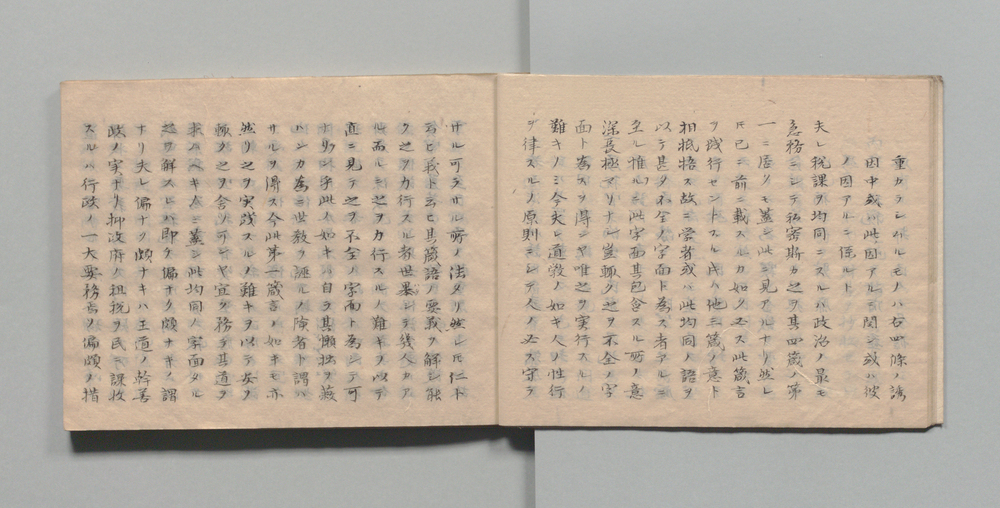 重カラシムルモノハ右四條ノ誘
因中或ハ此因アルニ関シ或ハ彼
ノ因アルニ係ルト
夫レ税課ヲ均同ニスルハ政治ノ最モ
急務ニシテ
一ニ居クモ蓋シ此ニ見アルナリ然レ
𪜈已ニ前ニ載スルカ如ク必ス此箴言
ヲ践行セントスル時ハ他三箴ノ意ト
相抵牾ス故ニ学者或ハ此均同ノ語ヲ
以テ甚タ不全ノ字面ト為ス者アルニ
至レ惟ルニ此字面其包含スル所ノ意
深長極マリナシ豈輙ク之ヲ不全ノ字
面ト為スヲ得ンヤ唯之ヲ実行スルノ
難キノミ今夫レ道教ノ如キ人ノ性行
ヲ律スルノ原則ニシテ人ノ必ス守ラ
サル可ラサル所ノ法タリ然レ𪜈仁ト
云ヒ義ト云ヒ其箴語ノ要義ヲ解シ能
ク之ヲ力行スル者世果シテ幾人カア
ル而ルニ之ヲ力行スルノ難キヲ以テ
直ニ見テ之ヲ不全ノ字面ト為シテ可
ナランヤ此ノ如キハ自ラ其懶拙ヲ蔵
ハンカ為ニ世教ヲ誣ルノ陋者ト謂ハ
サルヲ得ス今此第一箴言ノ如キモ亦
然リ之ヲ実践スルノ難キヲ以テ安ソ
輙ク之ヲ舎ツ可ンヤ宜ク務テ其道ヲ
求ムヘキナリ蓋シ此均同ノ字面タル
之ヲ解スレハ即チ偏ナク頗ナキノ謂
ナリ夫レ偏ナク頗ナキハ王道ノ幹善
政ノ実ナリ抑政府ノ租税ヲ民ニ課收
スルハ行政ノ一大要務